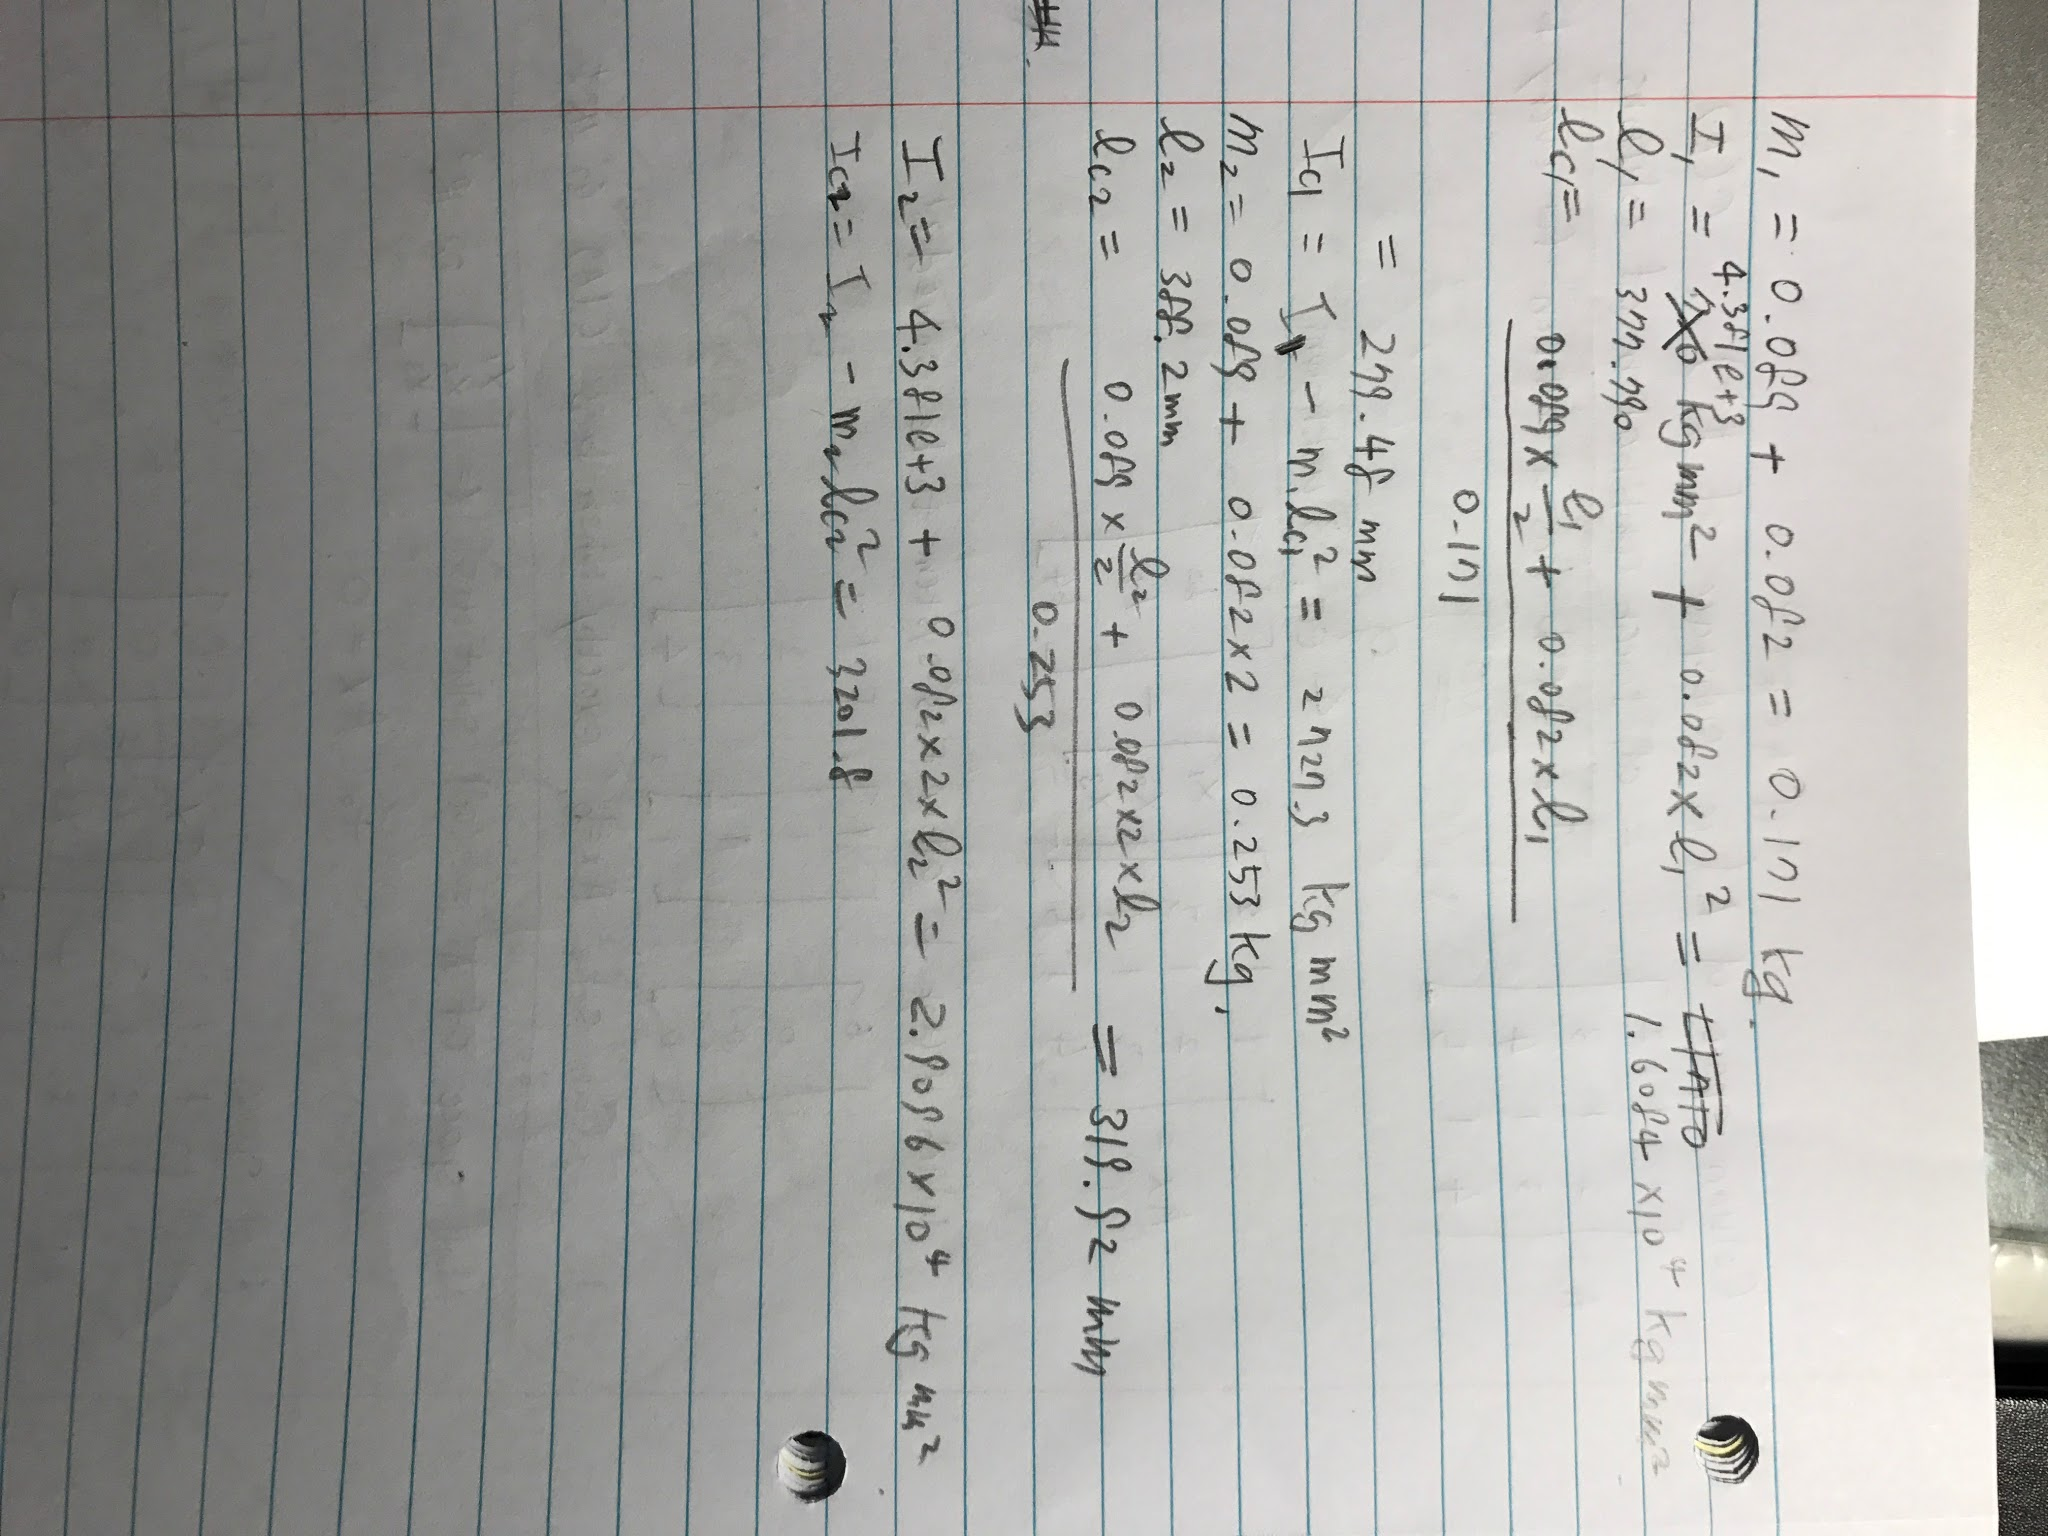 m₁ = 0.089 + 0.082 = 0.171 kg.
I₁ = 4.381e+3 kgmm² + 0.082×l₁² = 1.6084 ×10⁴ kg mm²
l₁ = 377.790
lc₁ = 0.089×l₁/2 + 0.082×l₁
0.171
= 279.48 mm
Ic₁ = I₁ - m₁lc₁² = 2727.3 kg mm²
m₂ = 0.089 + 0.082×2 = 0.253 kg,
l₂ = 388.2mm
lc₂ = 0.089 × l₂/2 + 0.082×2×l₂ = 319.92 mm
0.253
I₂ = 4.381e+3 + 0.082×2×l₂² = 2.9096×10⁴ kg mm²
Ic₂ = I₂ - m₂lc₂² = 3201.8